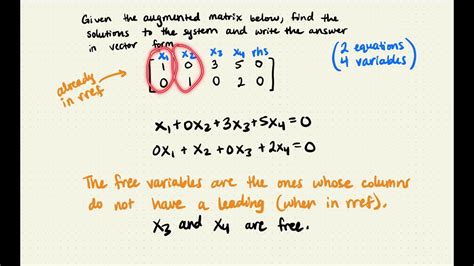 Given the augmented matrix below, find the
solutions to the system and write the answer
in vector form.
x₁ x₂ x₃ x₄ rhs
1 0 3 5 0
0 1 0 2 0
already
in rref
(2 equations
4 variables)
x₁+0x₂+3x₃+5x₄=0
0x₁+x₂+0x₃+2x₄=0
The free variables are the ones whose columns
do not have a leading (when in rref).
x₃ and x₄ are free.